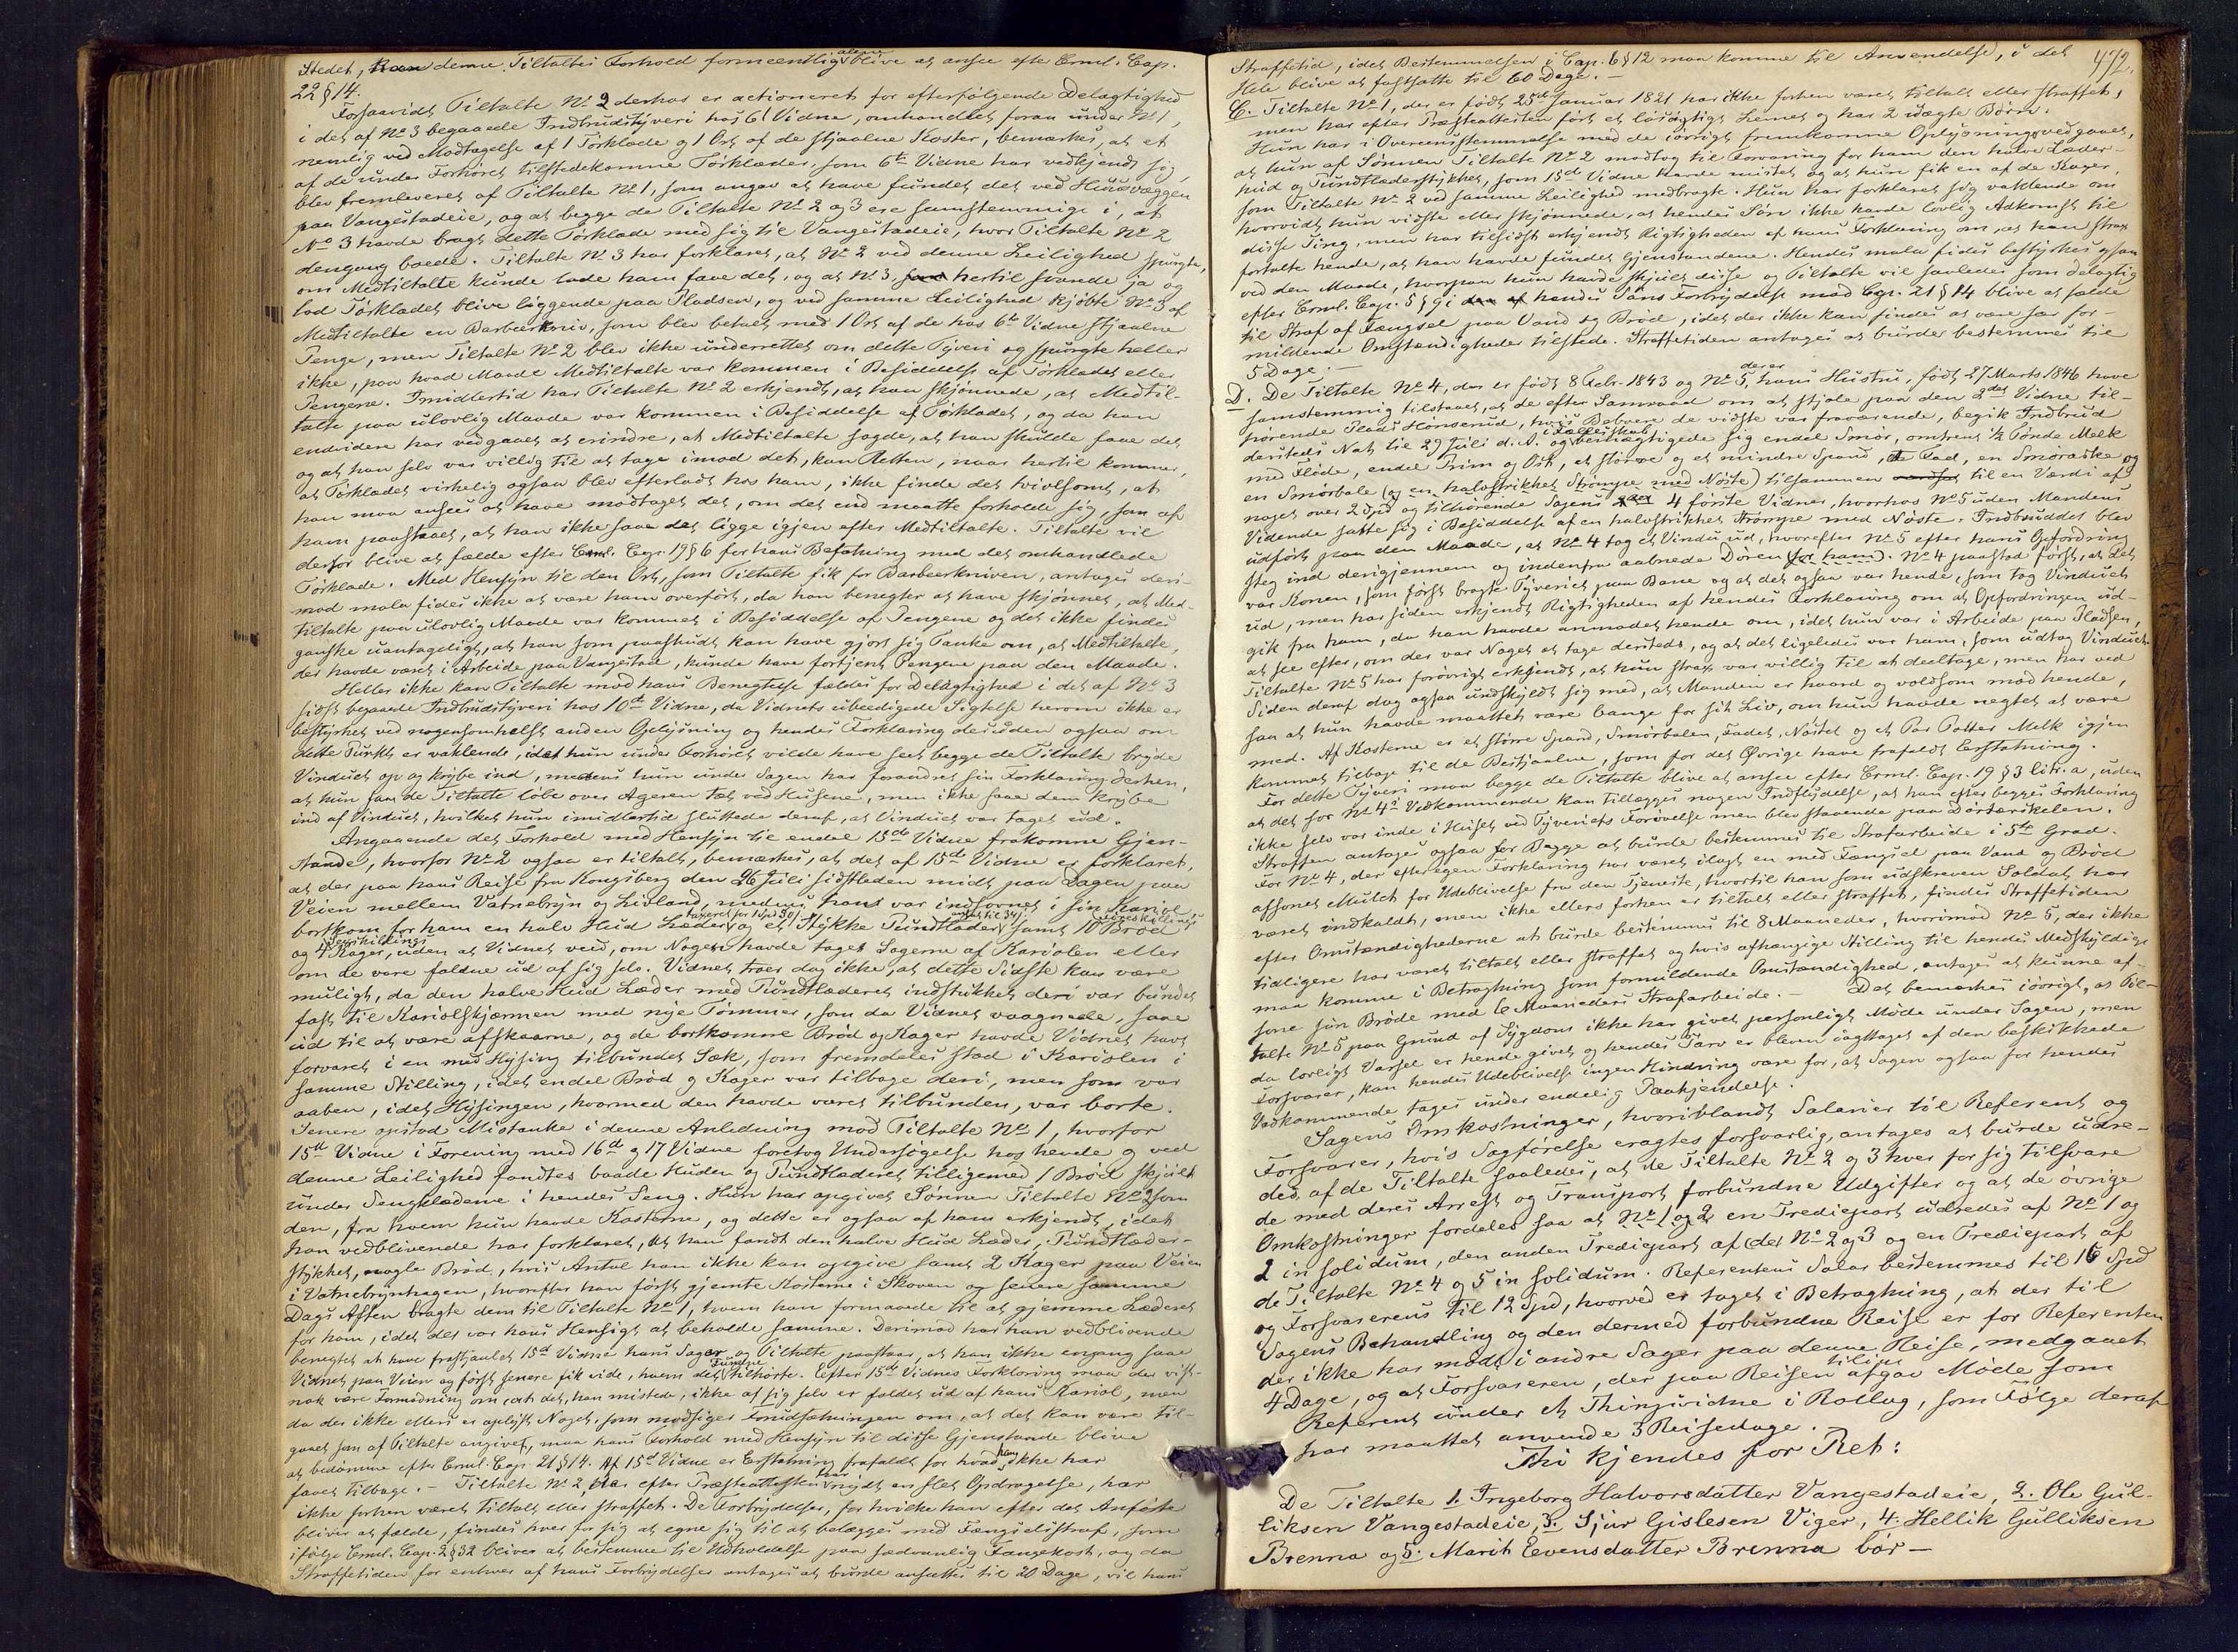 Stedet, kan denne Tiltaltes Forhold formeentlig alene blive at ansee efter Crml. Cap.
22 § 14.
Forsaavidt Tiltalte No 2 derhos er actioneret for efterfølgende Delagtighed
i det af No 3 begaaede Indbrudstyveri hos 6te Vidne, omhandlet foran under No 1,
nemlig ved Modtagelse af 1 Tørklæde og 1 Ort af de stjaalne Koster, bemærkes, at et
af de under Forhøret tilstedekomne Tørklæder, som 6te Vidne har vedkjendt sig,
blev fremleveret af Tiltalte No 1, som angav at have fundet det ved Huusvæggen
paa Vangestadeie, og at begge de Tiltalte No 2 og 3 ere samstemmige i, at
No 3 havde bragt dette Tørklæde med sig til Vangestadeie, hvor Tiltalte No 2
dengang boede. Tiltalte No 3 har forklaret, at No 2 ved denne Leilighed spurgte,
om Medtiltalte kunde lade ham faae det, og at No 3 hertil svarede ja og
lod Tørklædet blive liggende paa Pladsen, og ved samme Leilighed kjøbte No 3 af
Medtiltalte en Barbeerkniv, som blev betalt med 1 Ort af de hos 6te Vidne stjaalne
Penge, men Tiltalte No 2 blev ikke underrettet om dette Tyveri og spurgte heller
ikke, paa hvad Maade Medtiltalte var kommen i Besiddelse af Tørklædet eller
Pengene. Imidlertid har Tiltalte No 2 erkjendt, at han skjønnede, at Medtil-
talte paa ulovlig Maade var kommen i Besiddelse af Tørklædet, og da han
endvidere har vedgaaet at erindre, at Medtiltalte sagde, at han skulde faae det
og at han selv var villig til at tage imod det, kan Retten, naar hertil kommer,
at Tørklædet virkelig ogsaa blev efterladt hos ham, ikke finde det tvivlsomt, at
han maa ansees at have modtaget det, om det end maatte forholde sig, som af
ham paastaaet, at han ikke saae det ligge igjen efter Medtiltalte. Tiltalte vil
derfor blive at fælde efter Crml. Cap. 19 § 6 for hans Befatning med det omhandlede
Tørklæde. Med Hensyn til den Ort, som Tiltalte fik for Barbeerkniven, antages deri-
mod mala fides ikke at være ham overført, da han benegter at have skjønnet, at Med-
tiltalte paa ulovlig Maade var kommet i Besiddelse af Pengene og det ikke findes
ganske uantageligt, at han som paastaaet kan have gjort sig Tanke om, at Medtiltalte,
der havde været i Arbeide paa Vangestad, kunde have fortjent Pengene paa den Maade.
Heller ikke kan Tiltalte mod hans Benegtelse fældes for Delagtighed i det af No 3
sidst begaaede Indbrudstyveri hos 10de Vidne, da Vidnets ubeedigede Sigtelse herom ikke er
bestyrket ved nogensomhelst anden Oplysning og hendes Forklaring desuden ogsaa om
dette Punkt er vaklende, idet hun under Forhøret vilde have seet begge de Tiltalte bryde
Vinduet op og krybe ind, medens hun under Sagen har forandret sin Forklaring derhen,
at hun saae de Tiltalte løbe over Ageren tæt ved Husene, men ikke saae dem krybe
ind af Vinduet, hvilket hun imidlertid sluttede deraf, at Vinduet var taget ud.
Angaaende det Forhold med Hensyn til endel 15de Vidne frakomne Gjen-
stande, hvorfor No 2 ogsaa er tiltalt, bemærkes, at det af 15de Vidne er forklaret,
at der paa hans Reise fra Kongsberg den 26 Juli sidstleden midt paa Dagen paa
Veien mellem Vatnebryn og Livland, medens hans var indsovnet i sin Kariol
bortkom for ham en halv Hud Læder taxeret for 1 Spd 30 s og et Stykke Tundtlæder anslaaet til 34 s samt 10 Brød
og 4 Kager, uden at Vidnet veed, om Nogen havde taget Sagerne af Kariolen eller
om de vare faldne ud af sig selv. Vidnet troer dog ikke, at dette Sidste kan være
muligt, da den halve Hud Læder med Tundtlæderet indstukket deri var bundet
fast til Kariolskjærmen med nye Tømmer, som da Vidnet vaagnede, saae
ud til at være afskaarne, og de bortkomne Brød og Kager havde Vidnet havt
forvaret i en med Hysing tilbundet Sæk, som fremdeles stod i Kariolen i
samme Stilling, idet endel Brød og Kager var tilbage deri, men som var
aaben, idet Hysingen, hvormed den havde været tilbunden, var borte.
Senere opstod Mistanke i denne Anledning mod Tiltalte No 1, hvorfor
15de Vidne i Forening med 16de og 17 Vidne foretog Undersøgelse hos hende og ved
denne Leilighed fandtes baade Huden og Tundtlæderet tilligemed 1 Brød skjult
under Sengklæderne i hendes Seng. Hun har opgivet Sønnen Tiltalte No 2 som
den, fra hvem hun havde Kosterne, og dette er ogsaa af ham erkjendt, idet
han vedblivende har forklaret, at han fandt den halve Hud Læder, Tundtlæder-
stykket, nogle Brød, hvis Antal han ikke kan opgive samt 2 Kager paa Veien
i Vatnebrynhagen, hvorefter han først gjemte Kosterne i Skoven og senere samme
Dags Aften bragte dem til Tiltalte No 1, hvem han formaaede til at gjemme Læderet
for ham, idet det var hans Hensigt at beholde samme. Derimod har han vedblivende
benegtet at have frastjaalet 15de Vidne hans Sager og Tiltalte paastaar, at han ikke engang saae
Vidnet paa Veien og først senere fik vide, hvem det Fundne tilhørte. Efter 15de Vidnes Forklaring maa der vist-
nok være Formodning om, at det, han mistede, ikke af sig selv er faldet ud af hans Kariol, men
da der ikke ellers er oplyst Noget, som modsiger Forudsætningen om, at det kan være til-
gaaet som af Tiltalte angivet, maa hans Forhold med Hensyn til disse Gjenstande blive
at bedømme efter Crml. Cap. 21 § 14. Af 15de Vidne er Erstatning frafaldt for hvad han ikke har
faaet tilbage. – Tiltalte No 2, der efter Præsteattesten har nydt en slet Opdragelse, har
ikke forhen været tiltalt eller straffet. De Forbrydelser, for hvilke han efter det Anførte
bliver at fælde, findes hver for sig at egne sig til at belægges med Fængselsstraf, som
ifølge Crml. Cap. 2 § 32 bliver at bestemme til Udholdelse paa sædvanlig Fangekost, og da
Straffetiden for enhver af hans Forbrydelser antages at burde ansættes til 20 Dage, vil hans
472.
Straffetid, idet Bestemmelsen i Cap. 6 § 12 maa komme til Anvendelse, i det
Hele blive at fastsatte til 60 Dage. –
C. Tiltalte No 1, der er født 25de Januar 1821 har ikke forhen været tiltalt eller straffet,
men har efter Præsteattesten ført et løsagtigt Levnet og har 2 uægte Børn.
Hun har i Overeensstemmelse med de iøvrigt fremkomne Oplysninger vedgaaet,
at hun af Sønnen Tiltalte No 2 modtog til Forvaring for ham den halve Læder-
hud og Tundtlæderstykket, som 15de Vidne havde mistet og at hun fik en af de Kager,
som Tiltalte No 2 ved samme Leilighed medbragte. Hun har forklaret sig vaklende om
hvorvidt hun vidste eller skjønnede, at hendes Søn ikke havde lovlig Adkomst til
disse Ting, men har tilsidst erkjendt Rigtigheden af hans Forklaring om, at han strax
fortalte hende, at han havde fundet Gjenstandene. Hendes mala fides bestyrkes ogsaa
ved den Maade, hvorpaa hun havde skjult disse og Tiltalte vil saaledes som delagtig
efter Crml. Cap. 5 § 9 i hendes Søns Forbrydelse mod Cap. 21 § 14 blive at fælde
til Straf af Fængsel paa Vand og Brød, idet der ikke kan findes at være før for-
mildende Omstændigheder tilstede. Straffetiden antages at burde bestemmes til
5 Dage. –
D. De Tiltalte No 4, der er født 8 Febr. 1843 og No 5, hans Hustru, født 27 Marts 1846 have
samstemmig tilstaaet, at de efter Samraad om at stjæle paa den 2det Vidne til-
hørende Plads Hønserud, hvis Beboere de vidste var fraværende, begik Indbrud
dersteds Nat til 29 Juli d. A. og i Fællesskab bemægtigede sig endel Smør, omtrent ½ Tønde Melk
med Fløde, endel Prim og Ost, et større og et mindre Spand, et Fad, en Smøræske og
en Smørbale (og en halvstrikket Strømpe med Nøste) tilsammen til en Værdi af
noget over 2 Spd og tilhørende Sagens 4 første Vidner, hvorhos No 5 uden Mandens
Vidende satte sig i Besiddelse af en halvstrikket Strømpe med Nøste. Indbruddet blev
udført paa den Maade, at No 4 tog et Vindu ud, hvorefter No 5 efter hans Opfordring
steg ind derigjennem og indenfra aabnede Døren (for ham). No 4 paastod først, at det
var Konen, som først bragte Tyveriet paa Bane og at det ogsaa var hende, som tog Vinduet
ud, men har siden erkjendt Rigtigheden af hendes Forklaring om at Opfordringen ud-
gik fra ham, da han havde anmodet hende om, idet hun var i Arbeide paa Pladsen,
at see efter, om der var Noget at tage dersteds, og at det ligeledes var ham, som udtog Vinduet.
Tiltalte No 5 har forøvrigt erkjendt, at hun strax var villig til at deeltage, men har ved
Siden deraf dog ogsaa undskyldt sig med, at Manden er haard og voldsom mod hende,
saa at hun havde maattet være bange for sit Liv, om hun havde negtet at være
med. Af Kosterne er et større Spand, Smørbalen, Fadet, Nøstet og et Par Potter Melk igjen
kommet tilbage til de Bestjaalne, som for det Øvrige have frafaldt Erstatning.
For dette Tyveri maa begge de Tiltalte blive at ansee efter Crml. Cap. 19 § 3 litr. a, uden
at det for No 4s Vedkommende kan tillægges nogen Indflydelse, at han efter begges Forklaring
ikke selv var inde i Huset ved Tyveriets Forøvelse men blev staaende paa Dørtærskelen.
Straffen antages ogsaa for Begge at burde bestemmes til Strafarbeide i 5te Grad.
For No 4, der efter egen Forklaring har været ilagt en med Fængsel paa Vand og Brød
afsonet Mulct for Udeblivelse fra den Tjeneste, hvortil han som udskreven Soldat har
været indkaldt, men ikke ellers forhen er tiltalt eller straffet, findes Straffetiden
efter Omstændighederne at burde bestemmes til 8 Maaneder, hvorimod No 5, der ikke
tidligere har været tiltalt eller straffet og hvis afhængige Stilling til hendes Medskyldige
maa komme i Betragtning som formildende Omstændighed, antages at kunne af-
sone sin Brøde med 6 Maaneders Strafarbeide. – Det bemærkes iøvrigt, at Til-
talte No 5 paa Grund af Sygdom ikke har givet personligt Møde under Sagen, men
da lovligt Varsel er hende givet og hendes Tarv er bleven iagttaget af den beskikkede
Forsvarer, kan hendes Udeblivelse ingen Hindring være for, at Sagen ogsaa for hendes
Vedkommende tages under endelig Paakjendelse.
Sagens Omkostninger, hvoriblandt Salarier til Referent og
Forsvarer, hvis Sagførelse eragtes forsvarlig, antages at burde udre-
des af de Tiltalte saaledes, at de Tiltalte No 2 og 3 hver for sig tilsvare
de med deres Arrest og Transport forbundne Udgifter og at de øvrige
Omkostninger fordeles saa at No 1 og 2 en Trediepart udredes af No 1 og
2 in solidum, den anden Trediepart af (de) No 2 og 3 og en Trediepart af
de Tiltalte No 4 og 5 in solidum. Referentens Salar bestemmes til 16 Spd
og Forsvarerens til 12 Spd, hvorved er taget i Betragtning, at der til
Sagens Behandling og den dermed forbundne Reise er for Referenten
der ikke har mødt i andre Sager paa denne Reise, medgaaet
4 Dage, og at Forsvareren, der paa Reisen tillige afgav Møde som
Referent under et Thingsvidne i Rollag, som Følge deraf
har maattet anvende 3 Reisedage.
Thi kjendes for Ret:
De Tiltalte 1. Ingeborg Halvorsdatter Vangestadeie, 2. Ole Gul-
liksen Vangestadeie, 3. Sjur Gislesen Viger, 4. Hellik Gulliksen
Brenna og 5. Marit Evensdatter Brenna bør –